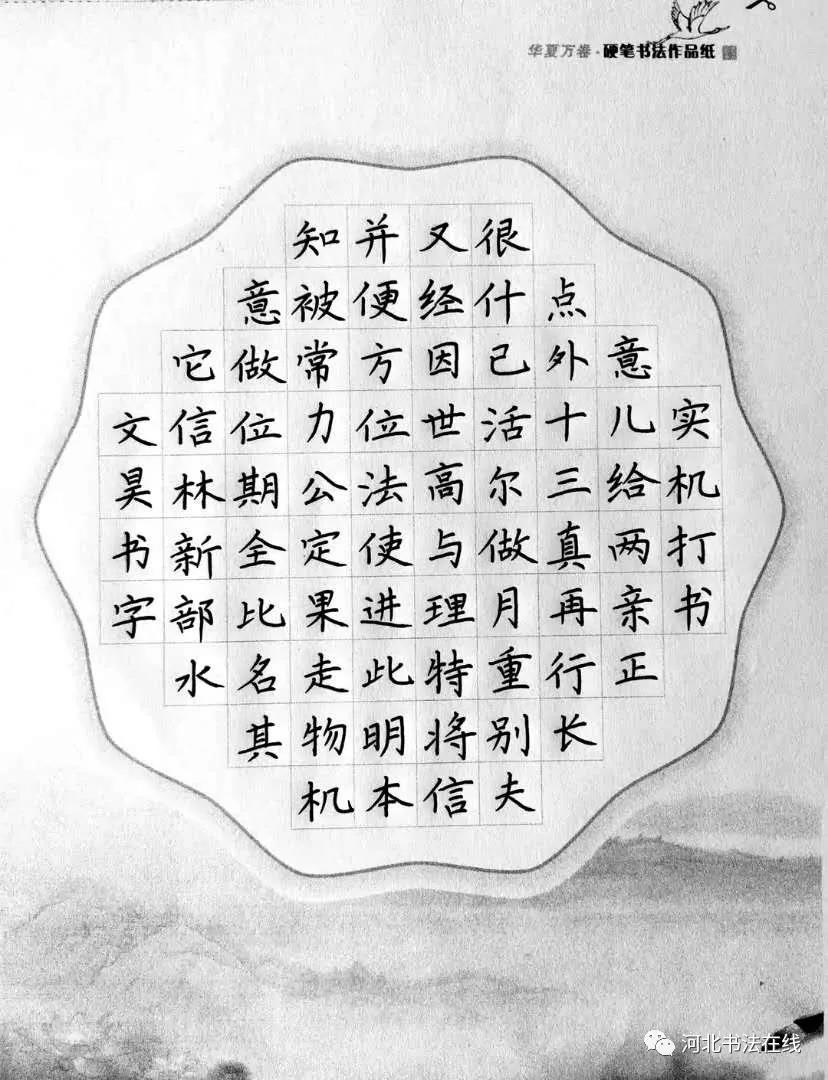 华夏万卷·硬笔书法作品纸
知并又很
意被便经什点
它做常方因已外意
文信位力位世活十儿实
昊林期公法高尔三给机
书新全定使与做真两打
字部比果进理月再亲书
水名走此特重行正
其物明将别长
机本信夫
河北书法在线